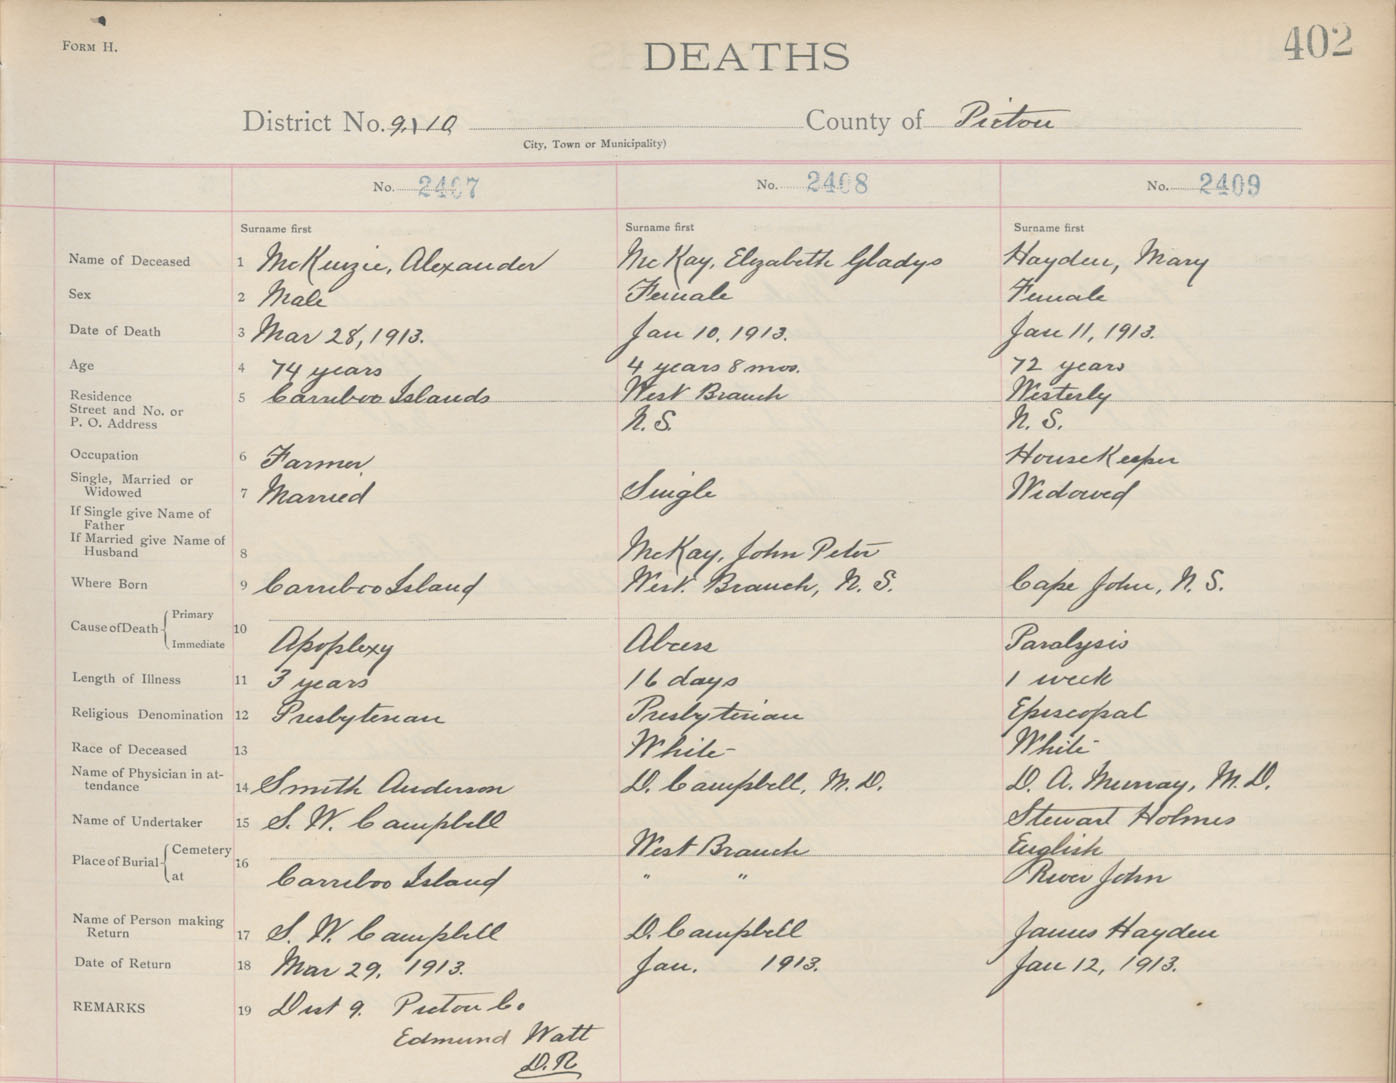 402
FORM H.
DEATHS
District No. 9, 10 County of Pictou
City, Town or Municipality)
No. 2407 No. 2408 No. 2409
Surname first Surname first Surname first
Name of Deceased 1 McKenzie, Alexander McKay, Elizabeth Gladys Hayden, Mary
Sex 2 Male Female Female
Date of Death 3 Mar 28, 1913. Jan 10, 1913. Jan 11, 1913.
Age 4 74 years 4 years 8 mos. 72 years
Residence 5 Carriboo Islands West Branch Westerly
Street and No. or
P. O. Address N. S. N. S.
Occupation 6 Farmer HouseKeeper
Single, Married or
Widowed 7 Married Single Widowed
If Single give Name of
Father
If Married give Name of
Husband 8 McKay, John Peter
Where Born 9 Carriboo Island West. Branch, N. S. Cape John, N. S.
Cause of Death Primary 10
Immediate Apoplexy Abcess Paralysis
Length of Illness 11 3 years 16 days 1 week
Religious Denomination 12 Presbyterian Presbyterian Episcopal
Race of Deceased 13 White White
Name of Physician in at-
tendance 14 Smith Anderson D. Campbell, M. D. D. A. Murray, M. D.
Name of Undertaker 15 S. W. Campbell Stewart Holmes
Place of Burial Cemetery 16 West Branch English
at Carriboo Island " " River John
Name of Person making
Return 17 S. W. Campbell D. Campbell James Hayden
Date of Return 18 Mar 29, 1913. Jan. 1913. Jan 12, 1913.
REMARKS 19 Dist 9. Pictou Co
Edmund Watt
D. R